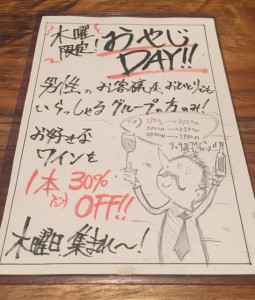 木曜
限定!
おやじ
DAY!!
男性のお客様が、おひとりでも
いらっしゃるグループの方のみ!
お好きな
ワインを
1本
30%
OFF!!
木曜日集まれ〜!